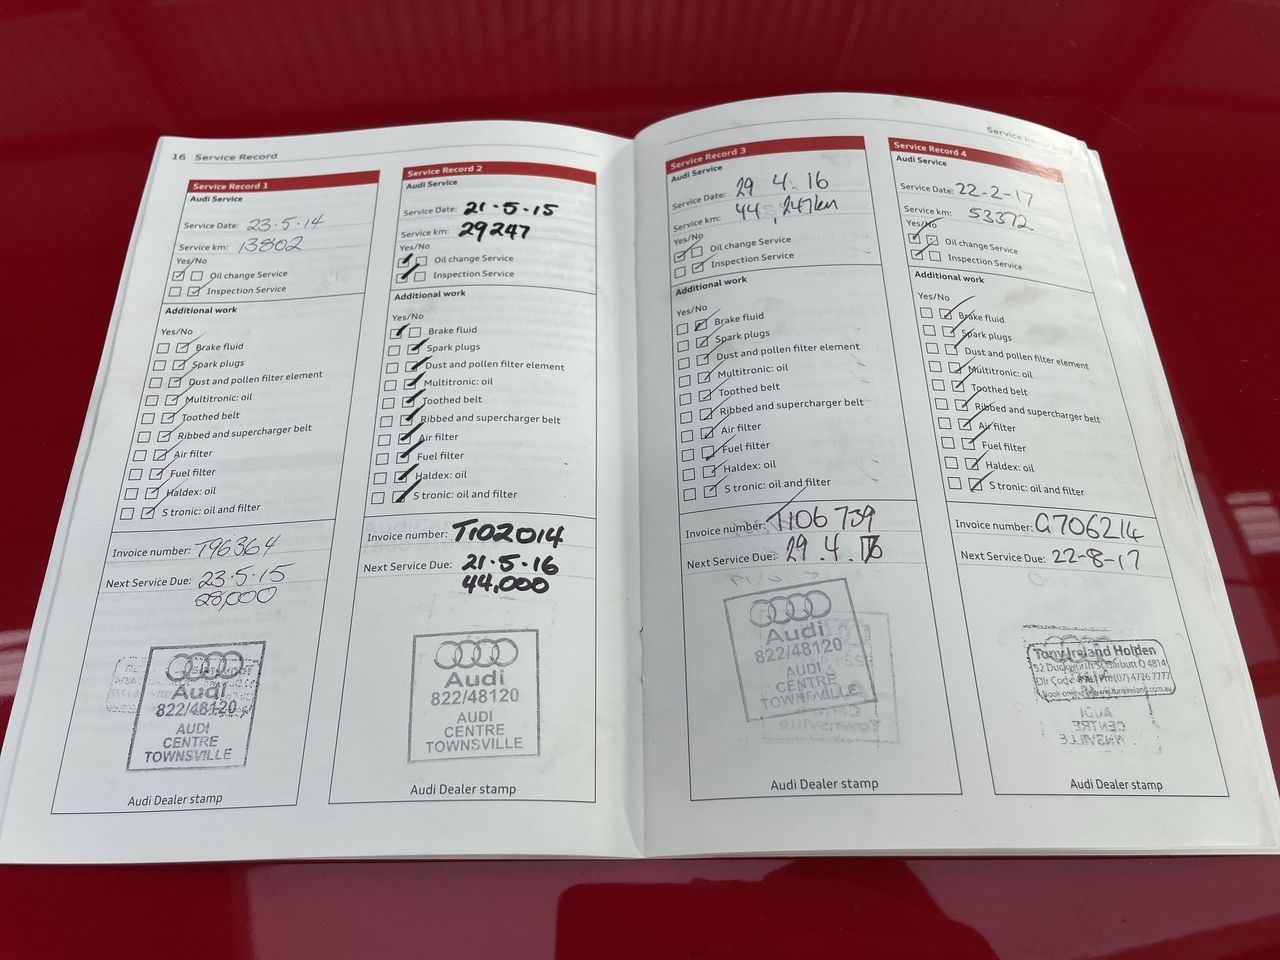 16 Service Record
Service Record 1
Audi Service
Service Date: 23.5.14
Service km: 13802
Yes/No
Oil change Service
Inspection Service
Additional work
Yes/No
Brake fluid
Spark plugs
Dust and pollen filter element
Multitronic: oil
Toothed belt
Ribbed and supercharger belt
Air filter
Fuel filter
Haldex: oil
S tronic: oil and filter
Invoice number: T96364
Next Service Due: 23.5.15
28,000
Audi
822/48120
AUDI
CENTRE
TOWNSVILLE
Audi Dealer stamp
Service Record 2
Audi Service
Service Date: 21.5.15
Service km: 29247
Yes/No
Oil change Service
Inspection Service
Additional work
Yes/No
Brake fluid
Spark plugs
Dust and pollen filter element
Multitronic: oil
Toothed belt
Ribbed and supercharger belt
Air filter
Fuel filter
Haldex: oil
S tronic: oil and filter
Invoice number: T102014
Next Service Due: 21.5.16
44,000
Audi
822/48120
AUDI
CENTRE
TOWNSVILLE
Audi Dealer stamp
Service Record 3
Audi Service
Service Date: 29 4. 16
Service km: 44,247km
Yes/No
Oil change Service
Inspection Service
Additional work
Yes/No
Brake fluid
Spark plugs
Dust and pollen filter element
Multitronic: oil
Toothed belt
Ribbed and supercharger belt
Air filter
Fuel filter
Haldex: oil
S tronic: oil and filter
Invoice number: T106739
Next Service Due: 29.4.
Audi
822/48120
AUDI
CENTRE
TOWNSVILLE
Audi Dealer stamp
Service Record
Service Record 4
Audi Service
Service Date: 22-2-17
Service km: 53372
Yes/No
Oil change Service
Inspection Service
Additional work
Yes/No
Brake fluid
Spark plugs
Dust and pollen filter element
Multitronic: oil
Toothed belt
Ribbed and supercharger belt
Air filter
Fuel filter
Haldex: oil
S tronic: oil and filter
Invoice number: G706214
Next Service Due: 22-8-17
Tony Ireland Holden
52 Duckworth St Garbutt Q 4814
Dlr Code Ph (07) 4726 7777
www.tonyireland.com.au
Audi Dealer stamp